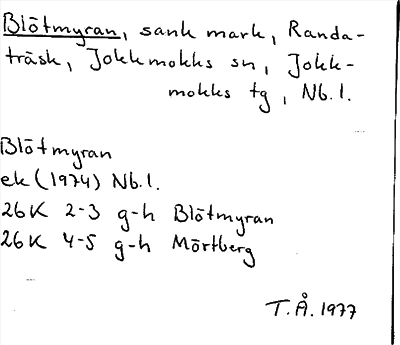 Blötmyran, sank mark, Randa-
träsk, Jokkmokks sn, Jokk-
mokks tg, Nb.l.
Blötmyran
ek (1974) Nb.l.
26K 2-3 g-h Blötmyran
26K 4-5 g-h Mörtberg
T.Å. 1977